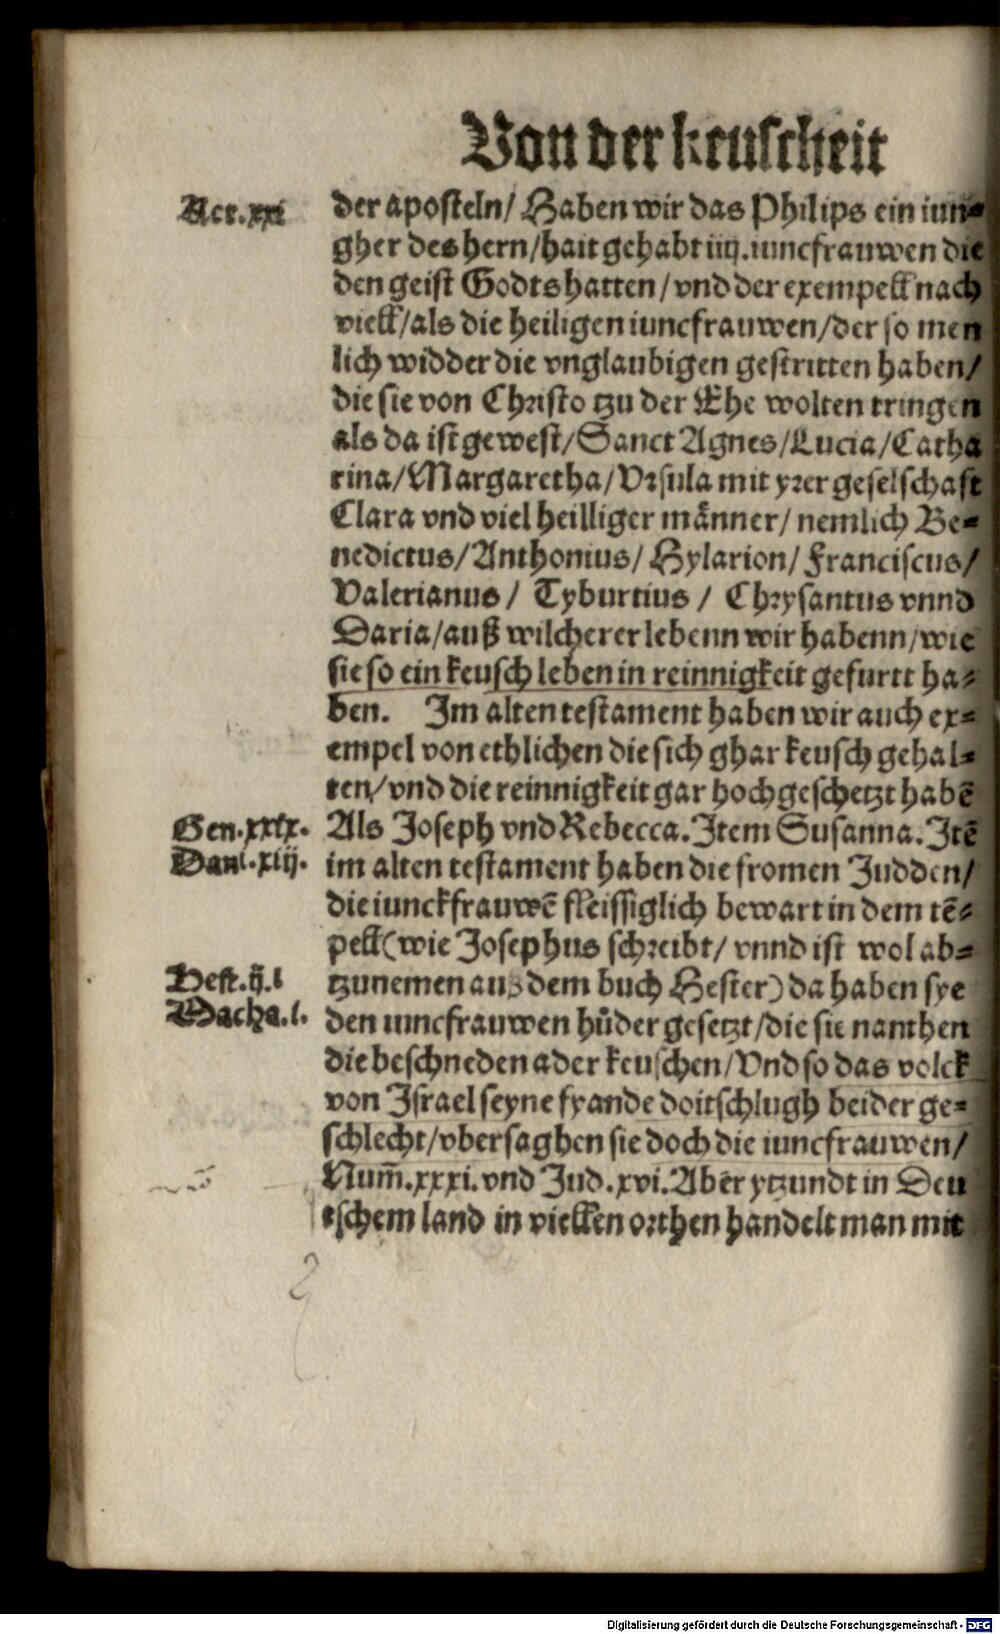 Von der keuscheit
Act.xxi
der aposteln/ Haben wir das Philips ein iun⸗
gher des hern/hait gehabt iiij.iuncfrauwen die
den geist Godts hatten/vnd der exempell nach
viell/als die heiligen iuncfrauwen/der so men
lich widder die vnglaubigen gestritten haben/
die sie von Christo tzu der Ehe wolten tringen
als da ist gewest/Sanct Agnes/Lucia/Catha
rina/Margaretha/Vrsula mit yrer geselschaft
Clara vnd viel heilliger männer/ nemlich Be⸗
nedictus/Anthonius/ Hylarion/ Franciscus/
Valerianus/ Tyburtius / Chrysantus vnnd
Daria/auß wilcherer lebenn wir habenn/wie
sie so ein keusch leben in reinnigkeit gefurtt ha⸗
ben. Im alten testament haben wir auch ex⸗
empel von ethlichen die sich ghar keusch gehal⸗
ten/vnd die reinnigkeit gar hoch geschetzt habē
Gen.xxix.
Als Joseph vnd Rebecca.Item Susanna.Itē
Dani.xiij.
im alten testament haben die fromen Judden/
die iunckfrauwē fleissiglich bewart in dem tē⸗
pell(wie Josephus schreibt/ vnnd ist wol ab⸗
Hest.ij.
tzunemen aus dem buch Hester)da haben sye
Macha.i.
den iuncfrauwen hůder gesetzt/die sie nanthen
die beschneden ader keuschen/Vnd so das volck
von Israel seyne fyande doitschlugh beider ge⸗
schlecht/vbersaghen sie doch die iuncfrauwen/
Num̄.xxxi.vnd Jud.xvi.Aber ytzundt in Deu
tschem land in viellen orthen handelt man mit
Digitalisierung gefördert durch die Deutsche Forschungsgemeinschaft - DFG